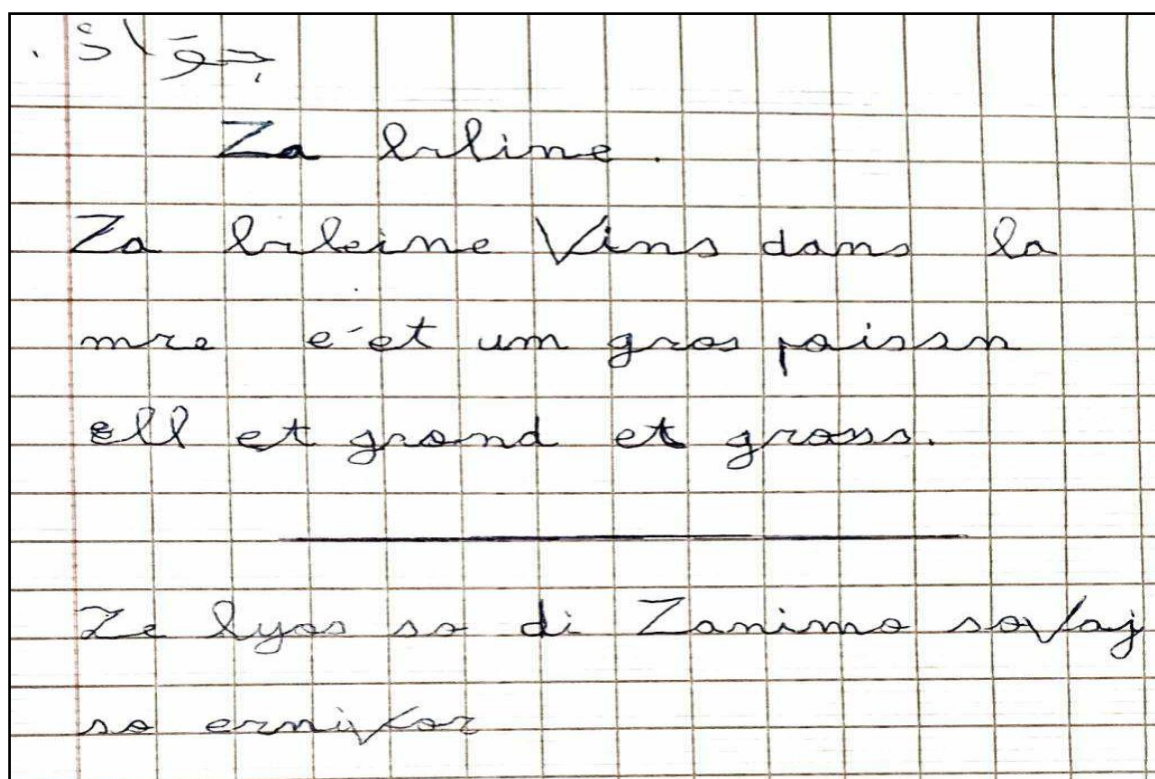 جواد.
Za brline.
Za brleine Vins dans la
mre e'et um gros poissn
ell et grand et gross.
Ze lyos so di Zanimo sovaj
so ernivor